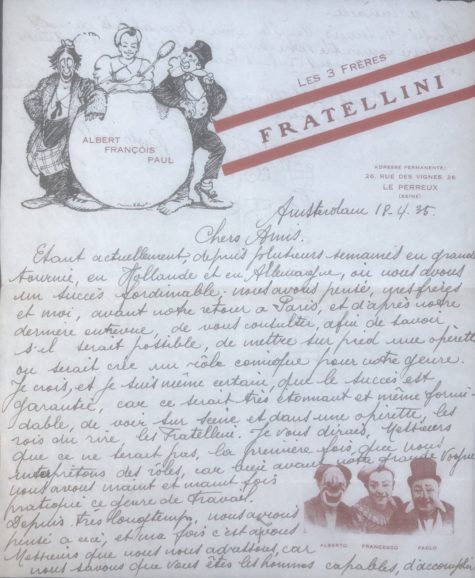 LES 3 FRÈRES
FRATELLINI
ALBERT
FRANÇOIS
PAUL
ADRESSE PERMANENTE:
26, RUE DES VIGNES, 26
LE PERREUX
(SEINE)
Amsterdam 18-4.35.
Chers Amis.
Etant actuellement, depuis plusieurs semaines en grande
tournié, en Hollande et en Allemagne, où nous avons
un succès formidable, nous avons pensé, mes frères
et moi, avant notre retour a Paris, et d'après notre
dernière entrevue, de vous consulter, afin de savoir
s-il serait possible, de mettre sur pied une opérette
ou serait crée un rôle comique pour notre genre.
Je crois, et je suis même certain, que le succès est
garantié, car ce serait très étonnant et même formi-
dable, de voir sur scène et dans une opérette, les
rois du rire, les Fratellini. Je vous dirais, Messieurs
que ce ne serait pas, la première fois, que nous
interprétons des rôles, car déjà avant notre grande vogue
nous avons maint et maint fois
pratiqué ce genre de travail.
Depuis très longtemps, nous avons
pensé a ceci, et ma fois c'est a vous
Messieurs que nous nous adressons, car
nous savons que vous êtes les hommes capables, d'accomplir
ALBERTO FRANCESCO PAOLO